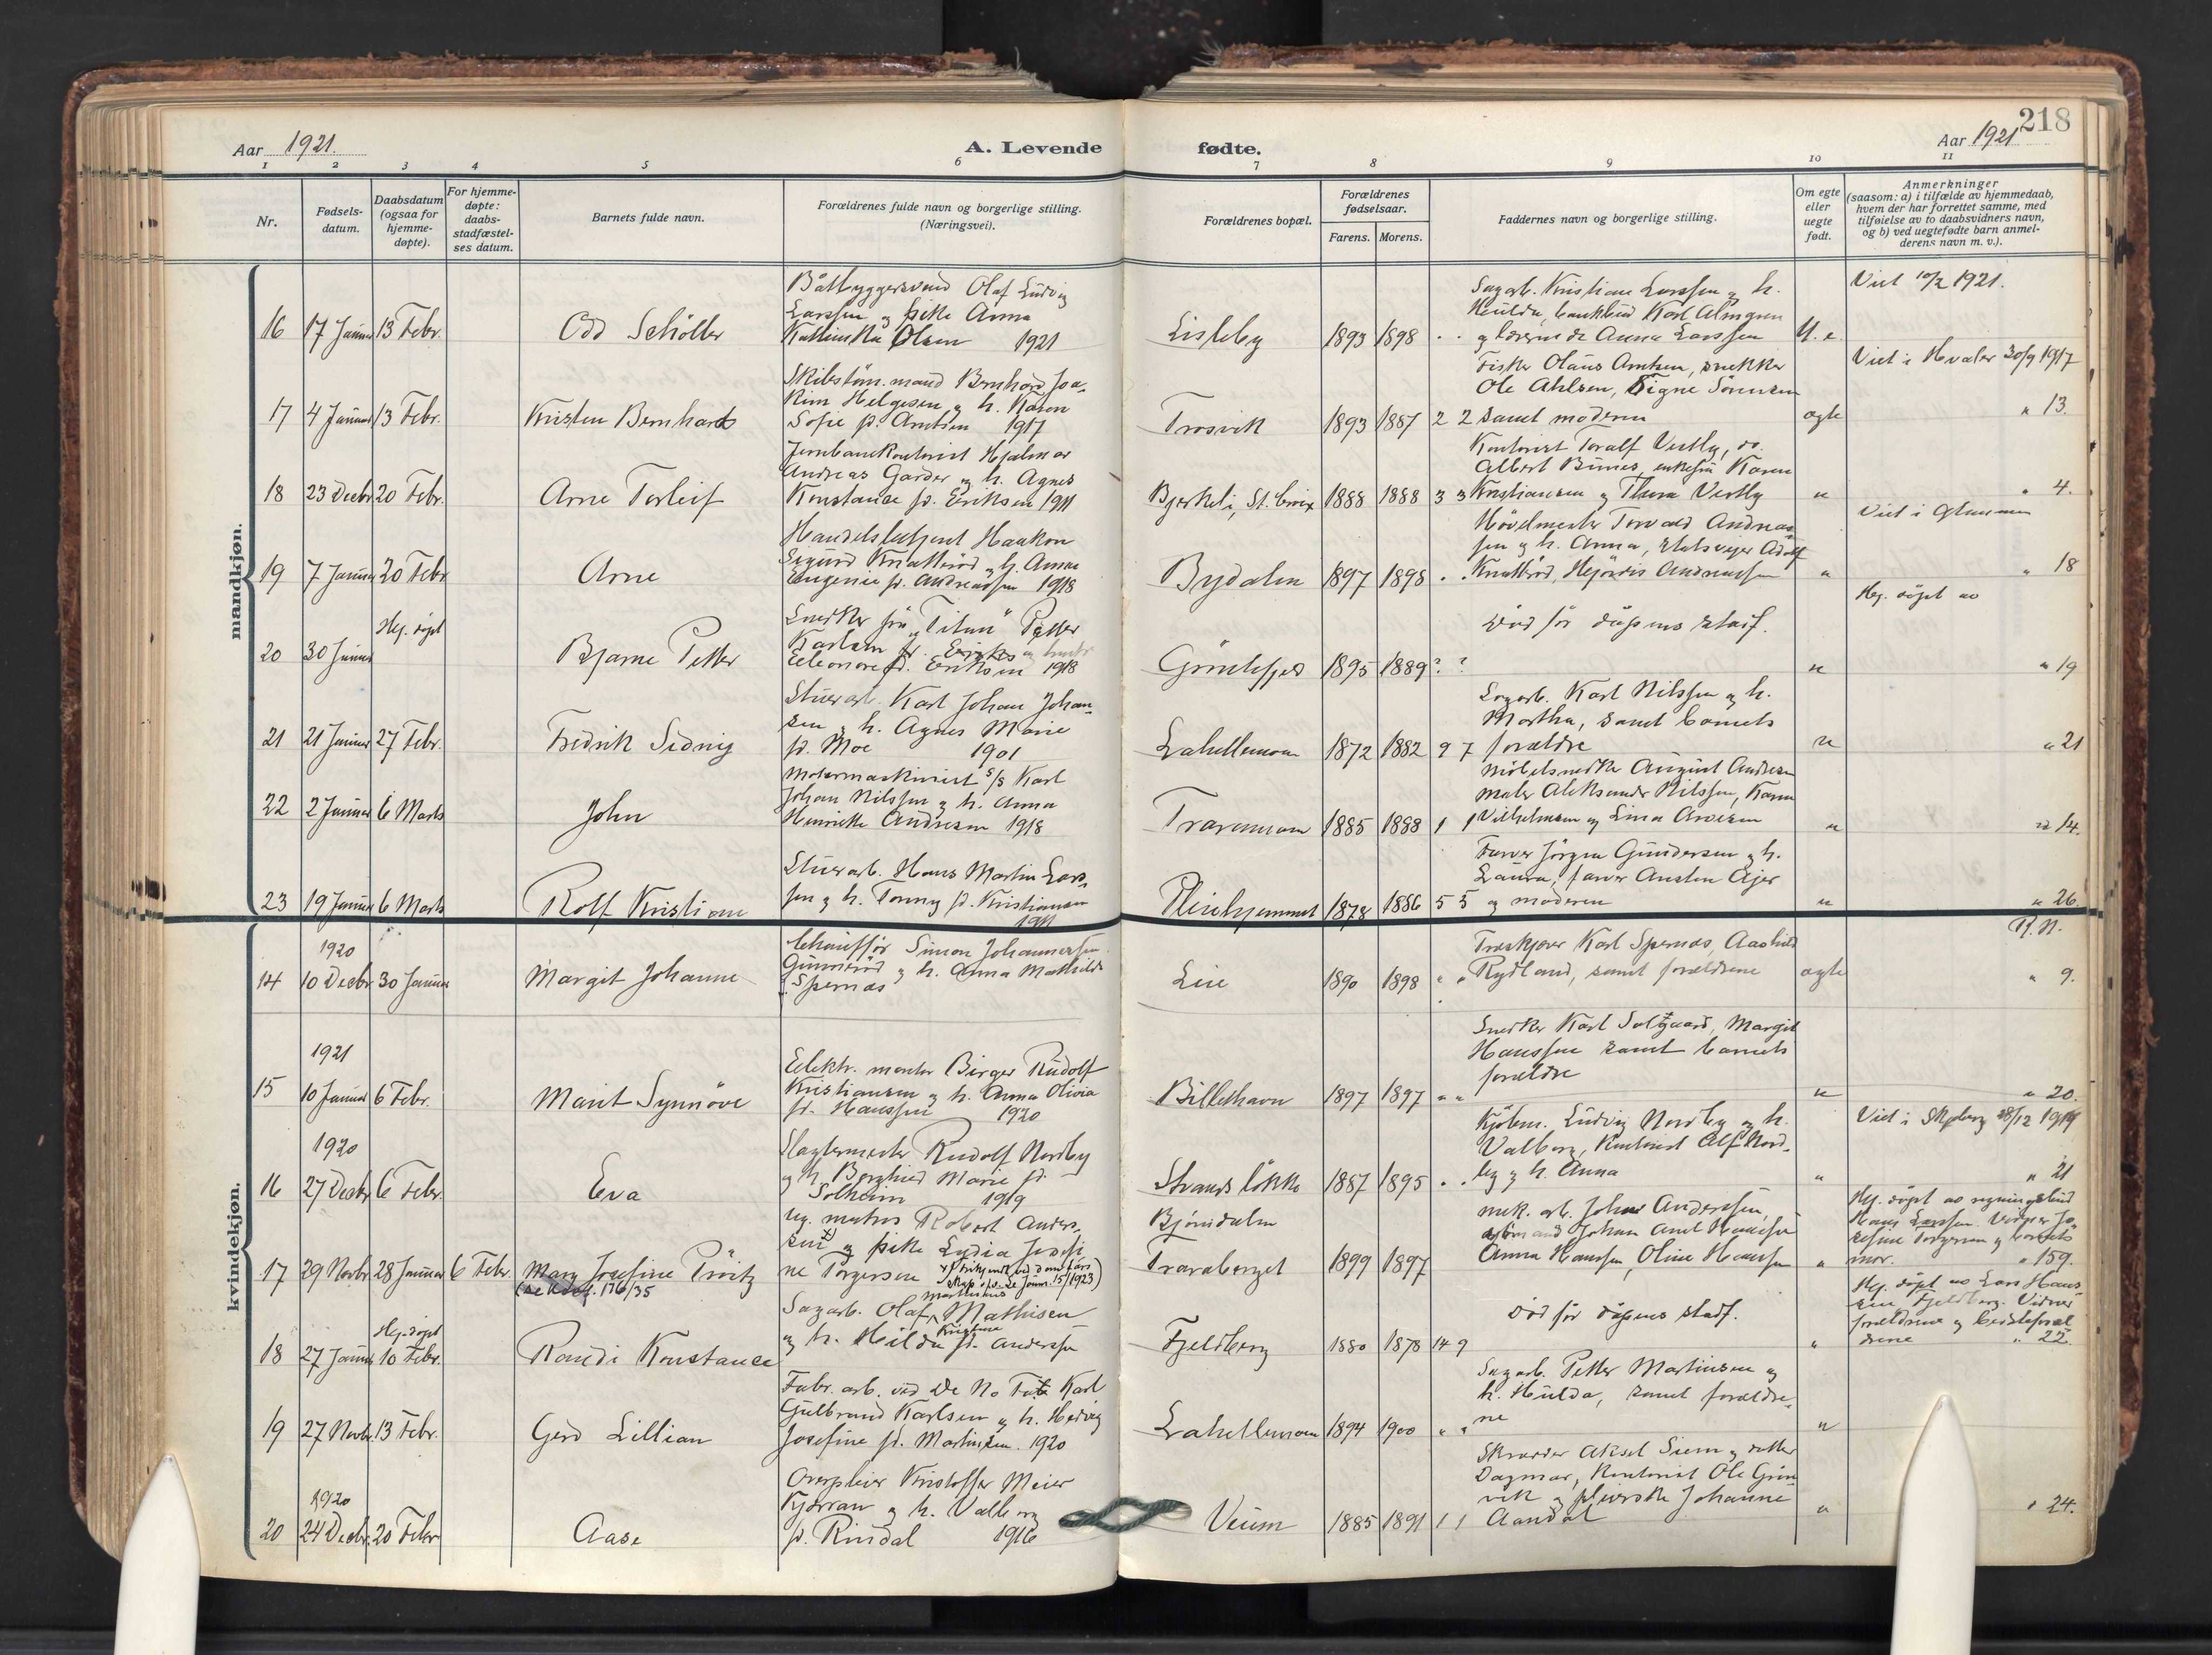 218
Aar 1921.
A. Levende
fødte.
Aar 1921
1 2 3 4 5 6 7 8 9 10 11
Nr.
Fødsels-
datum.
Daabsdatum
(ogsaa for
hjemme-
døpte).
For hjemme-
døpte:
daabs-
stadfæstel-
ses datum.
Barnets fulde navn.
Forældrenes fulde navn og borgerlige stilling.
(Næringsvei).
Forældrenes bopæl.
Forældrenes
fødselsaar.
Farens. Morens.
Faddernes navn og borgerlige stilling.
Om egte
eller
uegte
født.
Anmerkninger
(saasom: a) i tilfælde av hjemmedaab,
hvem der har forrettet samme, med
tilføielse av to daabsvidners navn,
og b) ved uegtefødte barn anmel-
derens navn m. v.).
mandkjøn.
16 17 Januar 13 Febr. Odd Schöller
Båtbyggersvend Olaf Ludvig
Larssen og pike Anna
Olsen 1921
Lisleby 1893 1898
Sagarb. Kristian Larssen og h.
Hulda, Karl Almgren
og Anna Larssen
U. e.
Viet 10/2 1921.
17 4 Januar 13 Febr. Kristen Bernhard
Skibstøm.mand Bernhard Joa-
kim Helgesen og h. Karen
Sofie f. Arntsen 1917
Trosvik 1893 1887 2 2
Fisker Olaus Arntsen, snekker
Ole Ahlsen, Signe Sörensen
samt moderen
egte
Viet i Hvaler 30/9 1917
" 13.
18 23 Decbr 20 Febr. Arne Torleif
Jernbanekontorist Hjalmar
Andreas Garder og h. Agnes
Konstance f. Eriksen 1911
Bjerkeli, St. Croix 1888 1888 3 3
Kontorist Toralf Vestly,
Albert enkefru Karen
Kristiansen og Thora Vestly
"
" 4.
19 7 Januar 20 Febr Arne
Handelsbetjent Haakon
Sigurd Knatteröd og h. Anna
Eugenie f. Andreassen 1918
Bydalen 1897 1898
Hövelmester Torvald Andreas-
sen og h. Anna, Adolf
Knatteröd, Hjördis Andreassen
"
Viet i Glemmen
" 18
20 30 Januar Hj. döpt Bjarne Petter
Snedker "Titan" Petter
Karlsen
Eleonore f. Eriksen 1918
1895 1889 ? ?
Död før dåpens stadf.
"
Hj. döpt av
" 19
21 21 Januar 27 Febr. Fredrik Sidnig
Stuerarb. Karl Johan Johan-
sen og h. Agnes Marie
f. Moe 1901
Lahellemoen 1872 1882 9 7
Sagarb. Karl Nilssen og h.
Martha, samt barnets
forældre
"
" 21
22 2 Januar 6 Marts John
Motormaskinist s/s Karl
Johan Nilssen og h. Anna
Henriette Andresen 1918
Traramoen 1885 1888 1 1
Möbelsnedker August Andresen
maler Aleksander Nilssen, Karen
Vilhelmsen og Lina
"
" 14.
23 19 Januar 6 Marts Rolf Kristian
Stuerarb. Hans Martin Lars-
sen og h. Tonny f. Kristiansen
1911
Pleiehjemmet 1878 1886 5 5
Farver Jörgen Gundersen og h.
Laura, farver Austen Ajer
og moderen
"
" 26.
kvindekjøn.
1920
14 10 Decbr 30 Januar Margit Johanne
Chauffør Simon Johannessen
Gunneröd og h. Anna Mathilde
Spernæs
Lie 1890 1898 " "
Træskjærer Karl Spernæs, Aashild
Rydland, samt forældrene
egte
P. N.
" 9.
1921
15 10 Januar 6 Febr. Marit Synnöve
Elektr. montør Birger Rudolf
Kristiansen og h. Anna Olivia
f. Hanssen 1920
Billethavn 1897 1897 " "
Snedker Karl Soltgaard, Margit
Hanssen samt barnets
forældre
"
" 20.
1920
16 27 Decbr 6 Febr. Eva
Slagtermester Rudolf Nordby
og h. Borghild Marie f.
Solheim 1919
Strandslökke 1887 1895
Kjöbm. Ludvig Nordby og h.
Valborg, Kontorist Alf Nord-
by og h. Anna
"
Viet i Skjeberg 28/12 1919
" 21
17 29 Novbr 28 Januar 6 Febr. Mary Josefine Pröitz
(se 176/35
Ug. matros Robert Anders-
sen og pike Lydia Josefi-
ne Torgersen
15/1923)
Björndalen
Traraberget 1899 1897
mek. arb. Johan Anderssen,
Johan Amt Hanssen
Anna Hanssen, Oline Hanssen
"
Hj. döpt av
Hans Larssen. Vidner Jo-
sefine Torgersen og barnets
mor. " 159.
18 27 Januar Hj. döpt 10 Febr. Randi Konstance
Sagarb. Olaf Mathisen
og h. Hilda Kristine f. Anderssen
Fjeldberg 1880 1878 14 9
Död før dåpens stadf.
"
Hj. döpt av Lars Hans-
sen, Fjeldberg. Vidner
forældrene og bedsteforæl
drene " 22.
19 27 Novbr. 13 Febr. Gerd Lillian
Fabr. arb. ved De No Karl
Gulbrand Karlsen og h. Hedvig
Josefine f. Martinsen. 1920
Lahellemoen 1894 1900 " "
Sagarb. Petter Martinsen og
h. Hulda, samt forældre-
ne
"
1920
20 24 Decbr. 20 Febr Aase
Overpleier Kristoffer Meier
og h. Valborg
f. Rindal 1916
Veum 1885 1891 1 1
Skrædder Aksel Siem og datter
Dagmar, Kontorist Ole Grin-
vik og pleierske Johanne
Aandal
"
" 24.